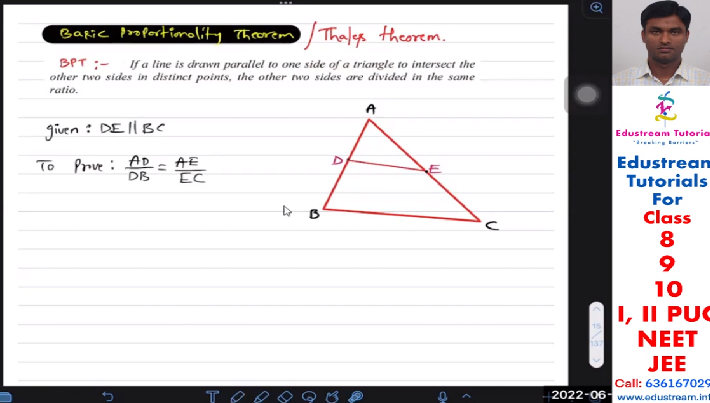 Basic Proportionality Theorem / Thales theorem.
BPT :- If a line is drawn parallel to one side of a triangle to intersect the
other two sides in distinct points, the other two sides are divided in the same
ratio.
given : DE || BC
To Prove : AD/DB = AE/EC
A
D
E
B
C
Edustream Tutoria
"Breaking Barriers"
Edustream
Tutorials
For
Class
8
9
10
I, II PUC
NEET
JEE
Call: 636167029
www.edustream.inf
15
137
2022-06-